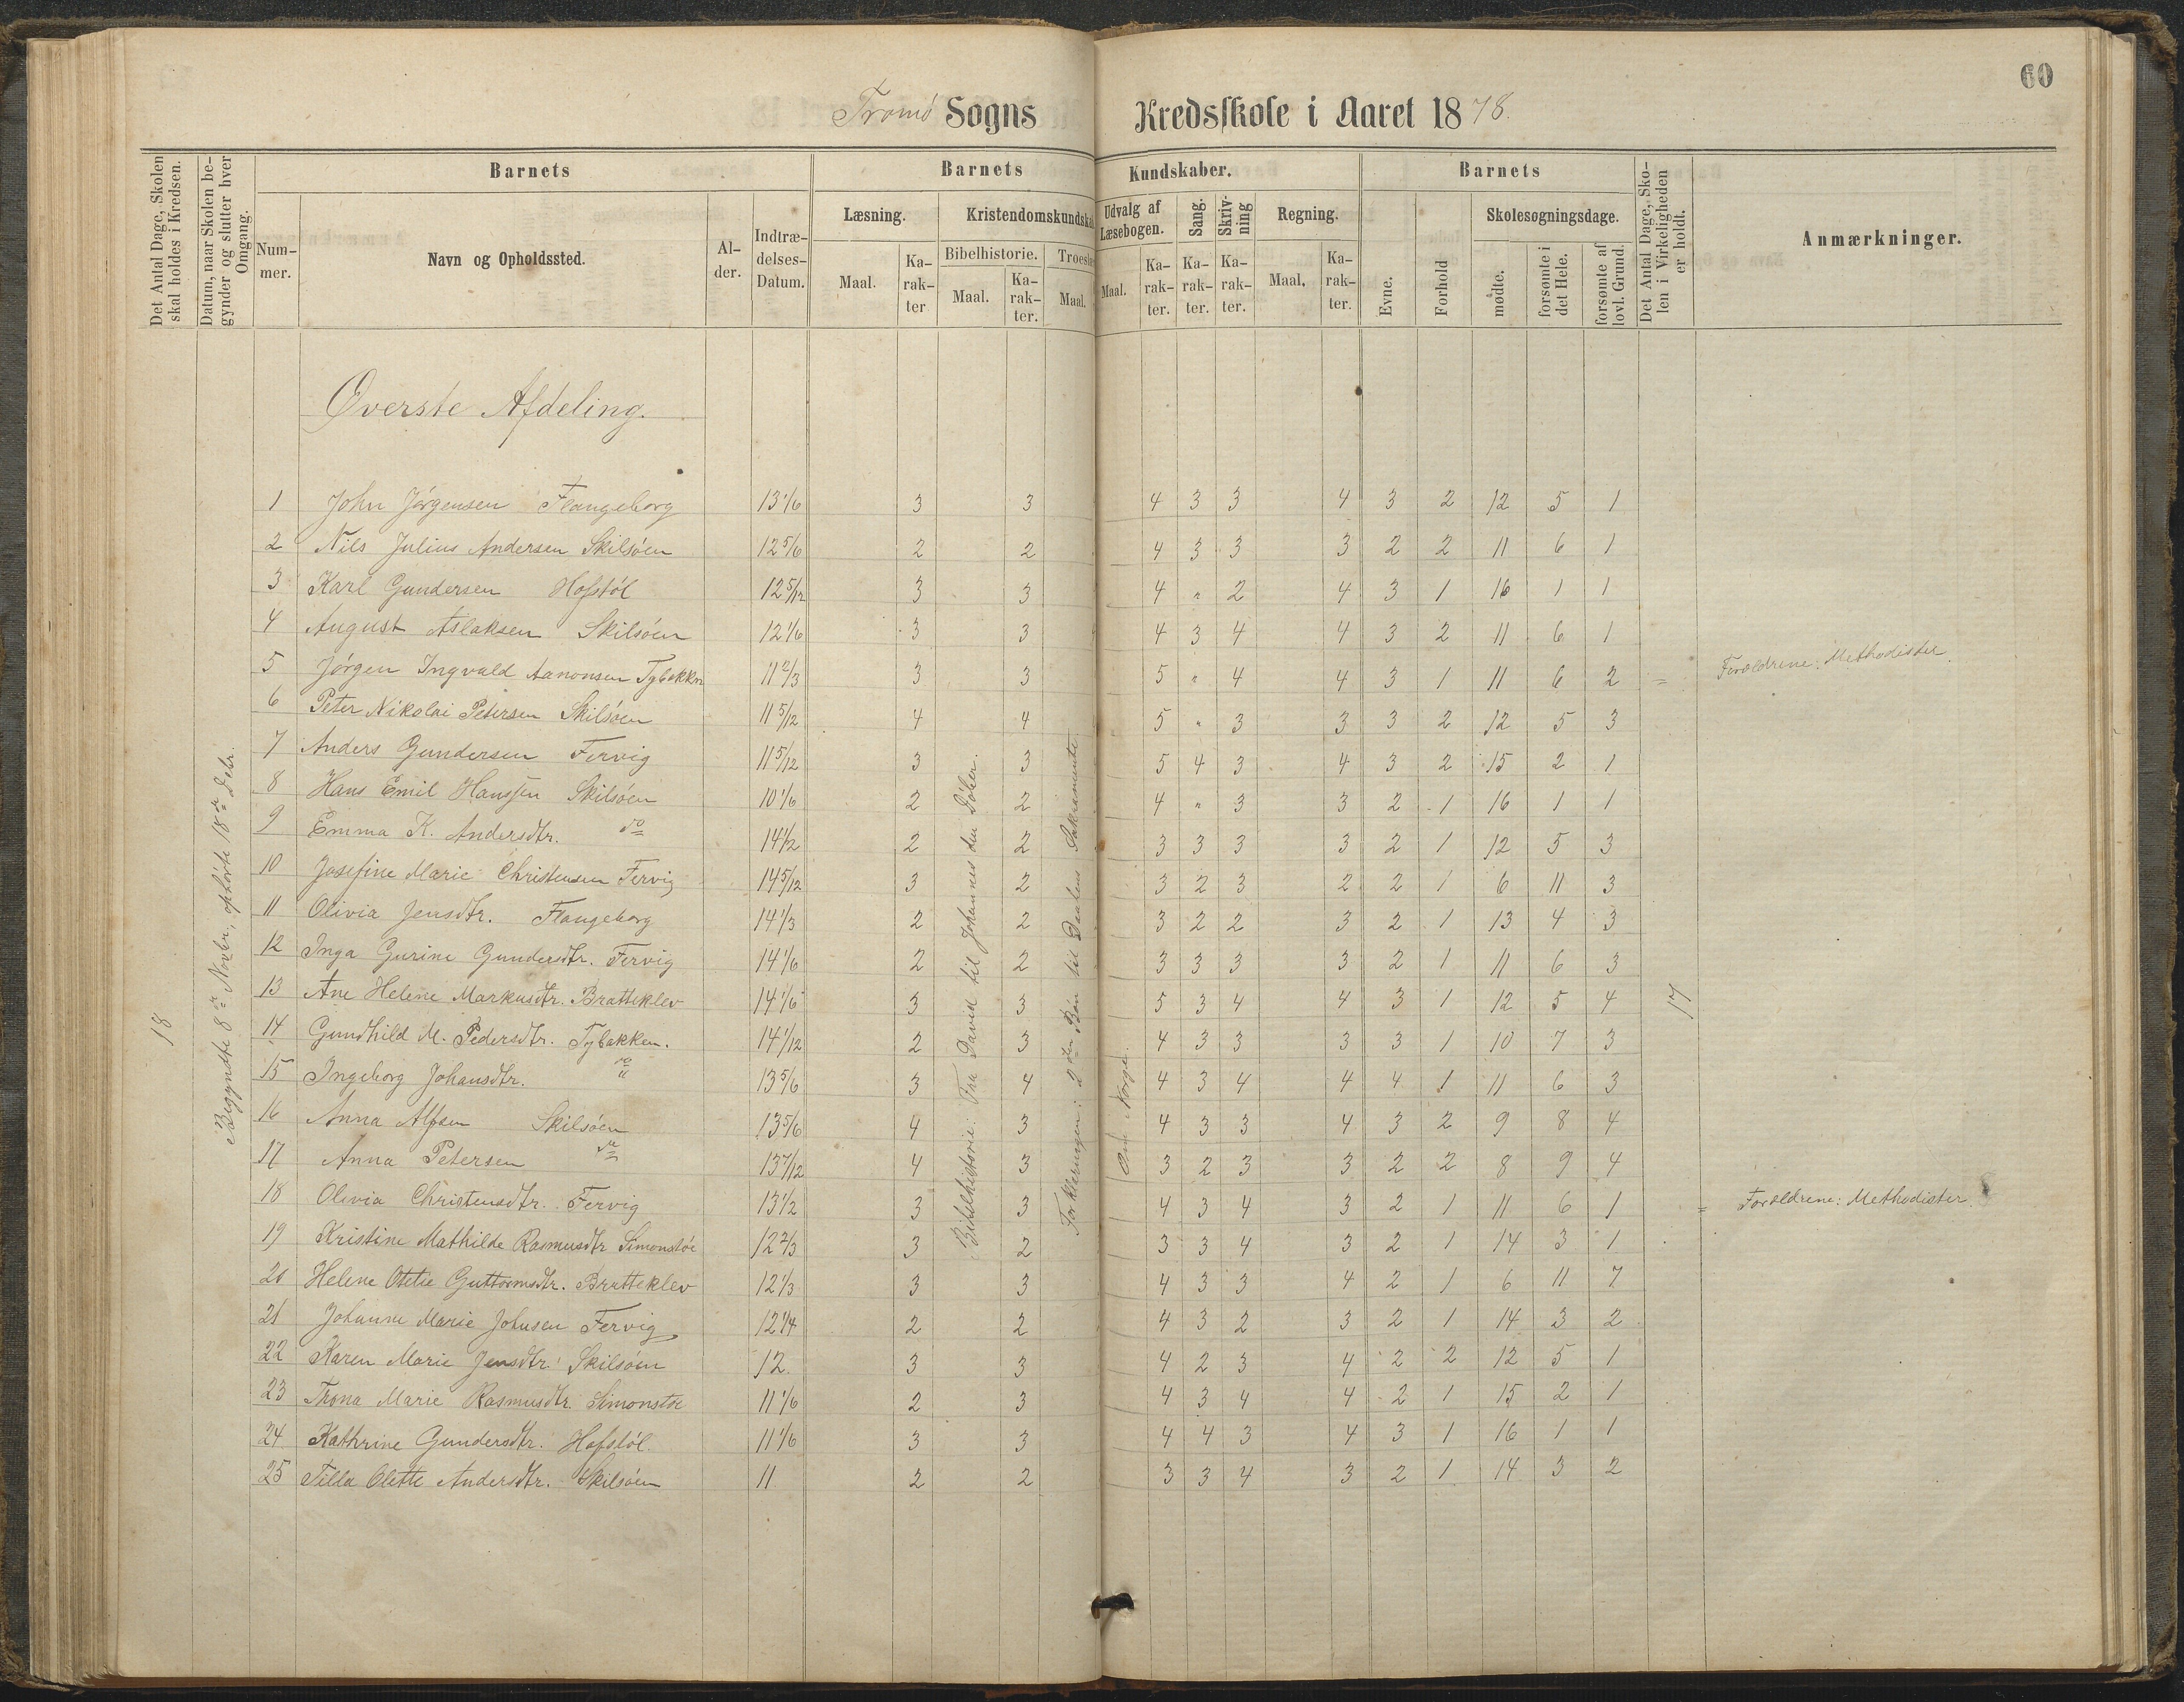 60
Tromö Sogns Kredsskole i Aaret 1878.
Det Antal Dage, Skolen skal holdes i Kredsen.
Datum, naar Skolen begynder og slutter hver Omgang.
Barnets
Barnets Kundskaber.
Barnets
Det Antal Dage, Skolen i Virkeligheden er holdt.
Anmærkninger.
Nummer.
Navn og Opholdssted.
Alder.
Indtrædelses-Datum.
Læsning.
Kristendomskundskab
Udvalg af Læsebogen.
Sang.
Skrivning
Regning.
Evne.
Forhold
Skolesøgningsdage.
Bibelhistorie.
Troeslære
Maal. Karakter Maal. Karakter. Maal. Maal. Karakter. Karakter. Karakter. Maal, Karakter.
mødte. forsømte i det Hele. forsømte af lovl. Grund.
Øverste Afdeling.
1 John Jörgensen Flangeborg 13 1/6 3 3 4 3 3 4 3 2 12 5 1
2 Nils Julius Andersen Skilsöen 12 5/6 2 2 4 3 3 3 2 2 11 6 1
3 Karl Gundersen Hofstöl 12 5/12 3 3 4 " 2 4 3 1 16 1 1
4 August Aslaksen Skilsöen 12 1/6 3 3 4 3 4 4 3 2 11 6 1
5 Jörgen Ingvald Aanonsen Tybakken 11 2/3 3 3 5 " 4 4 3 1 11 6 2 = Forældrene: Methodister.
6 Peter Nikolai Petersen Skilsöen 11 5/12 4 4 5 " 3 3 3 2 12 5 3
7 Anders Gundersen Fervig 11 5/12 3 3 5 4 3 4 3 2 15 2 1
8 Hans Emil Hanssen Skilsöen 10 1/6 2 2 4 " 3 3 2 1 16 1 1
9 Emma K. Andersdtr. do 14 1/2 2 2 3 3 3 3 2 1 12 5 3
10 Josefine Marie Christensen Fervig 14 5/12 3 2 3 2 3 2 2 1 6 11 3
11 Olivia Jensdtr. Flangeborg 14 1/3 2 2 3 2 2 3 2 1 13 4 3
12 Inga Gurine Gundersdtr. Fervig 14 1/6 2 2 3 3 3 3 2 1 11 6 3
13 Ane Helene Markusdtr. Bratteklev 14 1/6 3 3 5 3 4 4 3 1 12 5 4
14 Gundhild M. Pedersdtr. Tybakken. 14 1/12 2 3 4 3 3 3 3 1 10 7 3
15 Ingeborg Johansdtr. do 13 5/6 3 4 4 3 4 4 4 1 11 6 3
16 Anna Alfsen Skilsöen 13 5/6 4 3 4 3 3 4 3 2 9 8 4
17 Anna Petersen do 13 7/12 4 3 3 2 3 3 2 2 8 9 4
18 Olivia Christensdtr. Fervig 13 1/2 3 3 4 3 4 3 2 1 11 6 1 = Forældrene: Methodister.
19 Kristine Mathilde Rasmusdtr Simonstöe 12 2/3 3 2 3 3 4 3 2 1 14 3 1
20 Helene Otelie Guttormsdtr. Bratteklev 12 1/3 3 3 4 3 3 4 2 1 6 11 7
21 Johanne Marie Johnsen Fervig 12 1/4 2 2 4 3 2 3 2 1 14 3 2
22 Karen Marie Jensdtr. Skilsöen 12. 3 3 4 2 3 4 2 2 12 5 1
23 Trona Marie Rasmusdtr. Simonstöe 11 1/6 2 3 4 3 4 4 2 1 15 2 1
24 Kathrine Gundersdtr. Hofstöl. 11 1/6 3 3 4 4 3 4 3 1 16 1 1
25 Tilda Olette Andersdtr. Skilsöen 11 2 2 3 3 4 3 2 1 14 3 2
18
Begyndte 8de Novbr., ophörte 18de Debr.
Bibelhistorie: Fra David til Johannes den Döber.
Forklaringen: 2den Bön til Daabens Sakramente.
Om Norge.
17